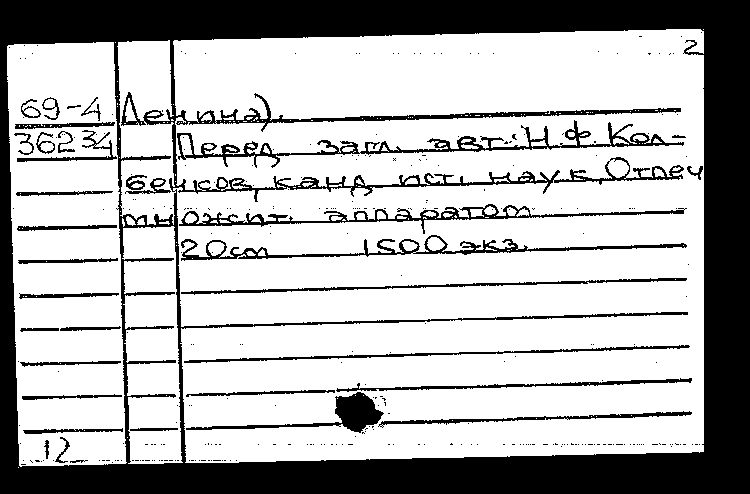 2
69-4 Ленина).
36234 Перед загл. авт.: Н.Ф. Кол-
бенков, канд. ист. наук. Отпеч
множит. аппаратом
20 см 1500 экз.
12